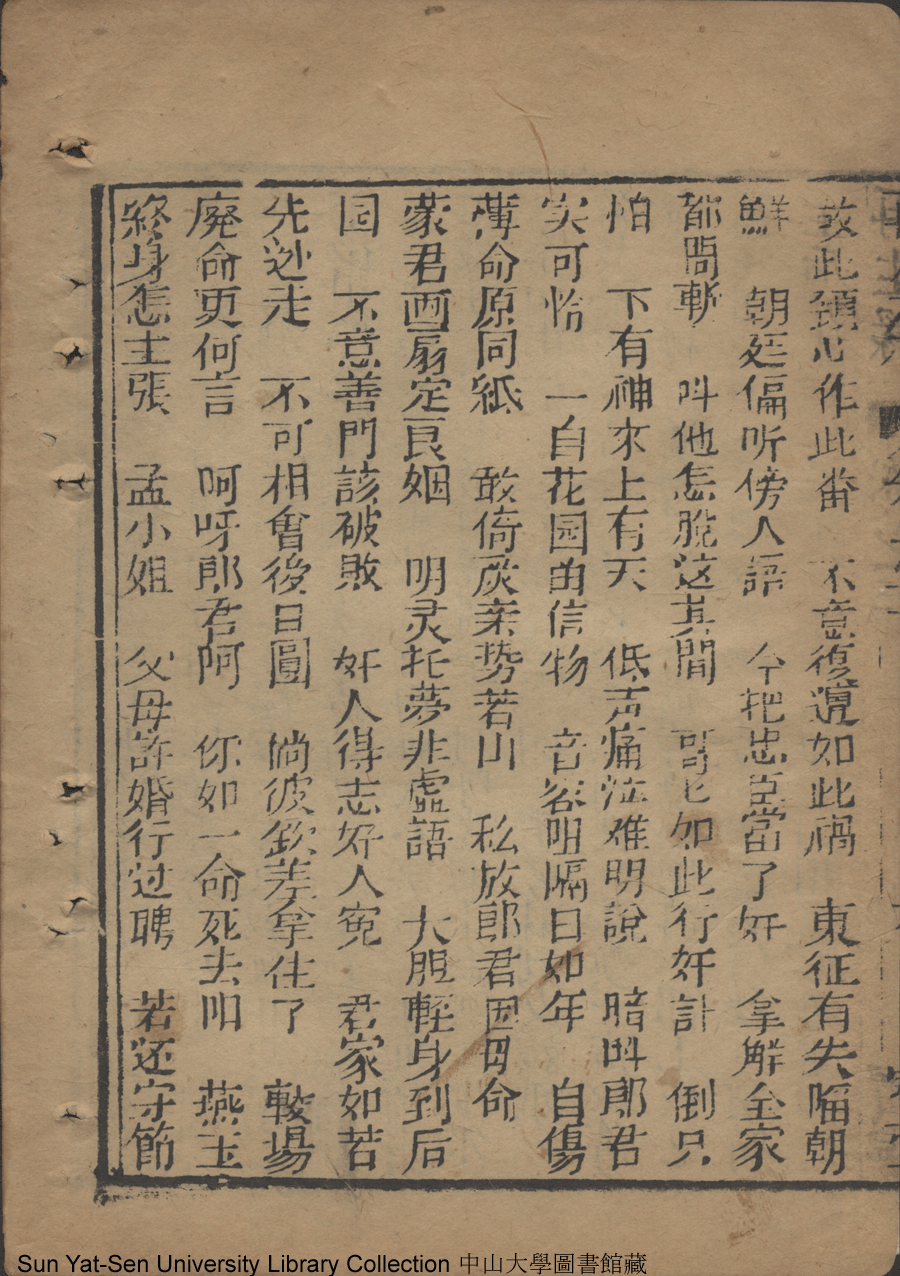 故此鎮心作此番　不意復遭如此禍　東征有失陥朝
鮮　朝廷偏听傍人語　今把忠臣當了奸　拿解全家
都問斬　叫他怎脫这其間　哥匕如此行奸計　倒只
怕　下有神來上有天　低声痛泣难明說　暗叫郎君
实可怜　一自花园由信物　音容明隔日如年　自傷
薄命原同紙　敢倚灰亲势若山　私放郎君因母命
蒙君画扇定良姻　明灵托夢非虛語　大胆輕身到后
园　不意善門該破敗　奸人得志好人寃　君家如若
先逊走　不可相會後日圓　倘彼欽差拿住了　較場
廃命更何言　呵呀郎君阿　你如一命死去阳　燕玉
終身怎主張　孟小姐　父母許婚行过聘　若还守節
Sun Yat-Sen University Library Collection 中山大學圖書館藏